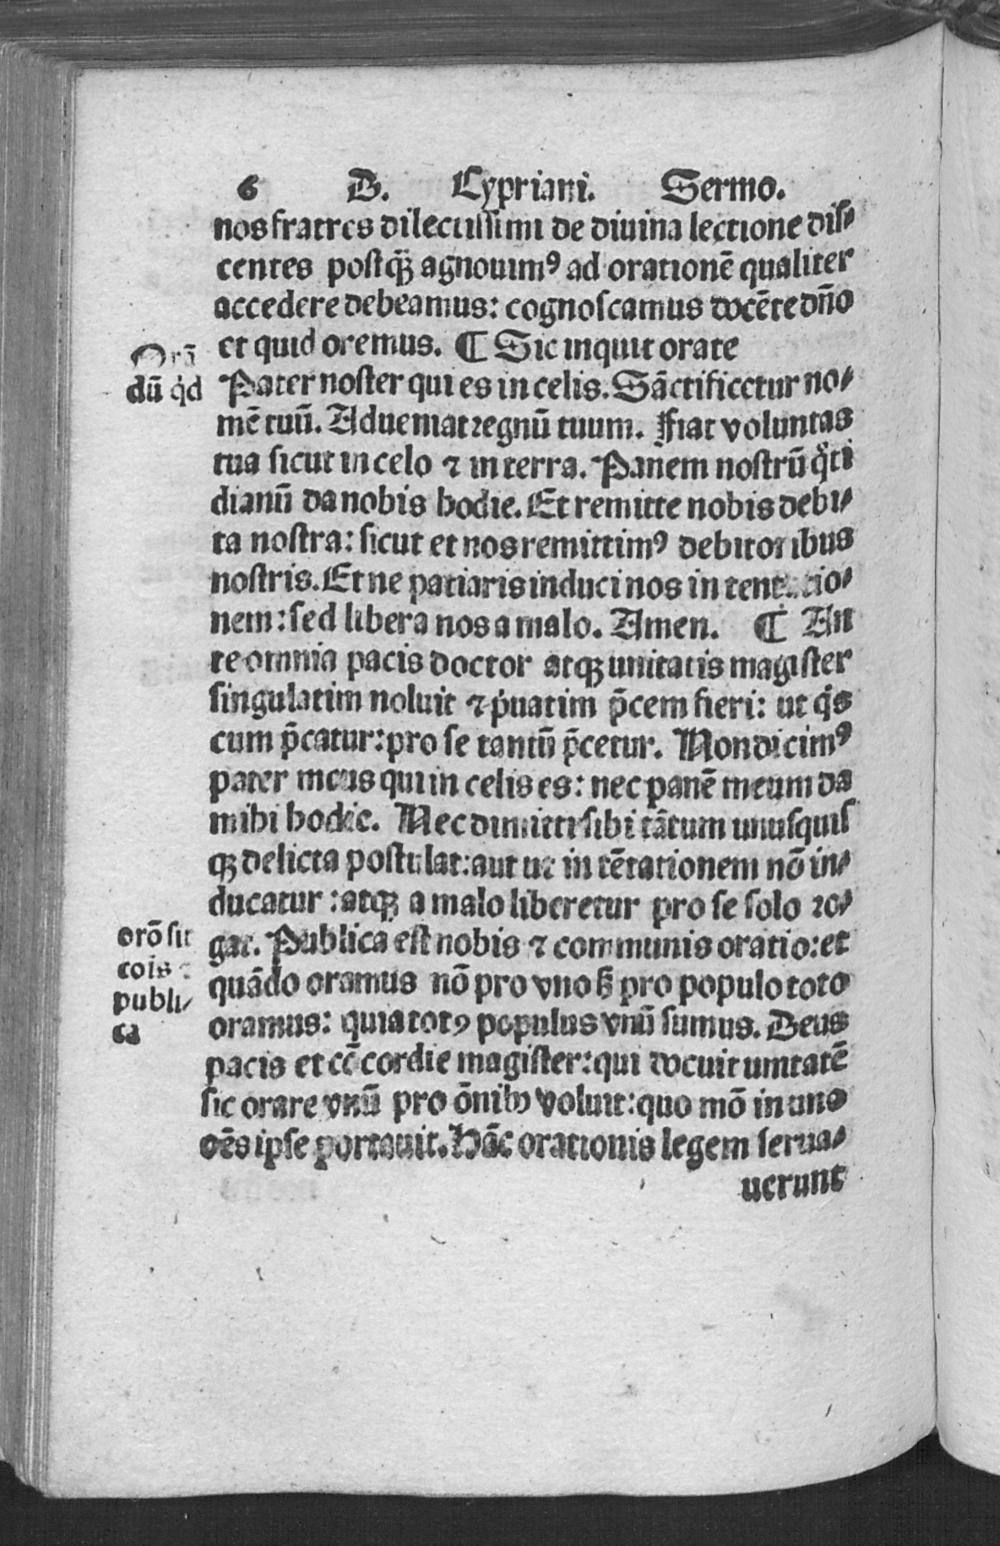 6 D. Cypriani. Sermo.
nos fratres dilectissimi de diuina lectione dis⸗
centes postq̃ agnouimꝰ ad orationē qualiter
accedere debeamus: cognoscamus docēte dño
et quid oremus. ¶ Sic inquit orate
Orā
dū qd
Pater noster qui es in celis. Sāctificetur no⸗
mē tuū. Adueniat regnū tuum. Fiat voluntas
tua sicut in celo ⁊ in terra. Panem nostrū qͦti
dianū da nobis hodie. Et remitte nobis debi⸗
ta nostra: sicut et nos remittimꝰ debitoribus
nostris. Et ne patiaris induci nos in tentatio⸗
nem: sed libera nos a malo. Amen. ¶ An
te omnia pacis doctor atqꝫ unitatis magister
singulatim noluit ⁊ p̍uatim p̄cem fieri: ut qͥs
cum p̄catur: pro se tantū p̄cetur. Non dicimꝰ
pater meus qui in celis es: nec panē meum da
mihi hodie. Nec dimitti sibi tātum unusquis
qꝫ delicta postulat: aut ut in tētationem nō in⸗
ducatur: atqꝫ a malo liberetur pro se solo ro⸗
gat. Publica est nobis ⁊ communis oratio: et
orō sit
cōis ⁊
publi⸗
ca
quādo oramus nō pro vno sꝫ pro populo toto
oramus: quia totꝰ populus vnū sumus. Deus
pacis et cōcordie magister: qui docuit unitatē
sic orare vnū pro ōnibꝰ voluit: quo mō in uno
oēs ipse portauit. Hāc orationis legem serua⸗
uerunt